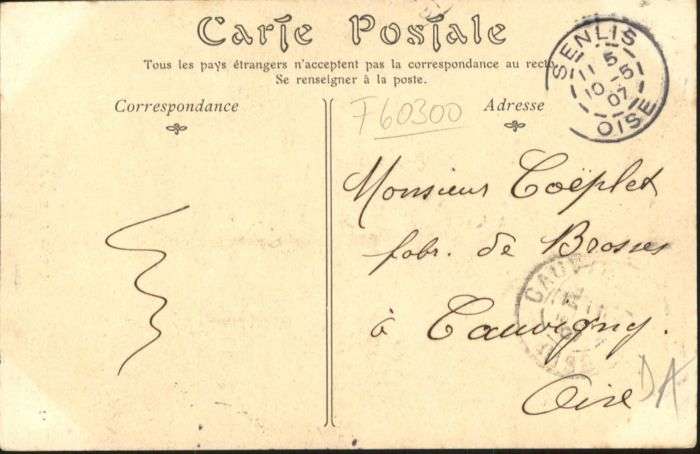 Carte Postale
Tous les pays étrangers n'acceptent pas la correspondance au recto
Se renseigner à la poste.
Correspondance
F60300
Adresse
SENLIS
5
11
10-5
07
OISE
Monsieur Coëplet
fabr. de Brosses
à Cauvigny.
Oise
CAUV
DA